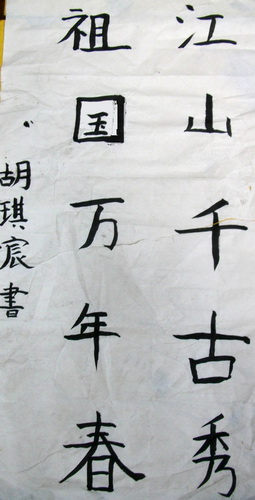 江山千古秀
祖国万年春
胡琪宸書